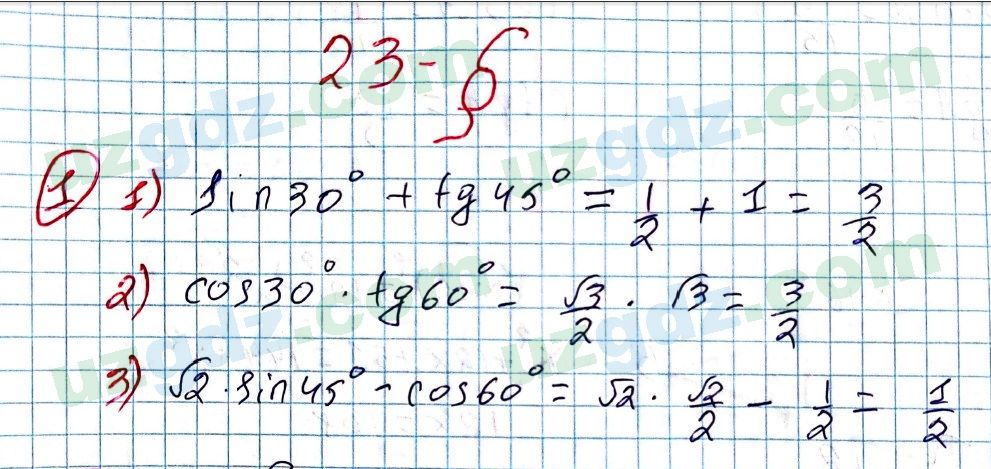 23-§
1 1) sin30° + tg45° = 1/2 + 1 = 3/2
2) cos30° · tg60° = √3/2 · √3 = 3/2
3) √2 · sin45° - cos60° = √2 · √2/2 - 1/2 = 1/2
uzgdz.com
uzgdz.com
uzgdz.com
uzgdz.com